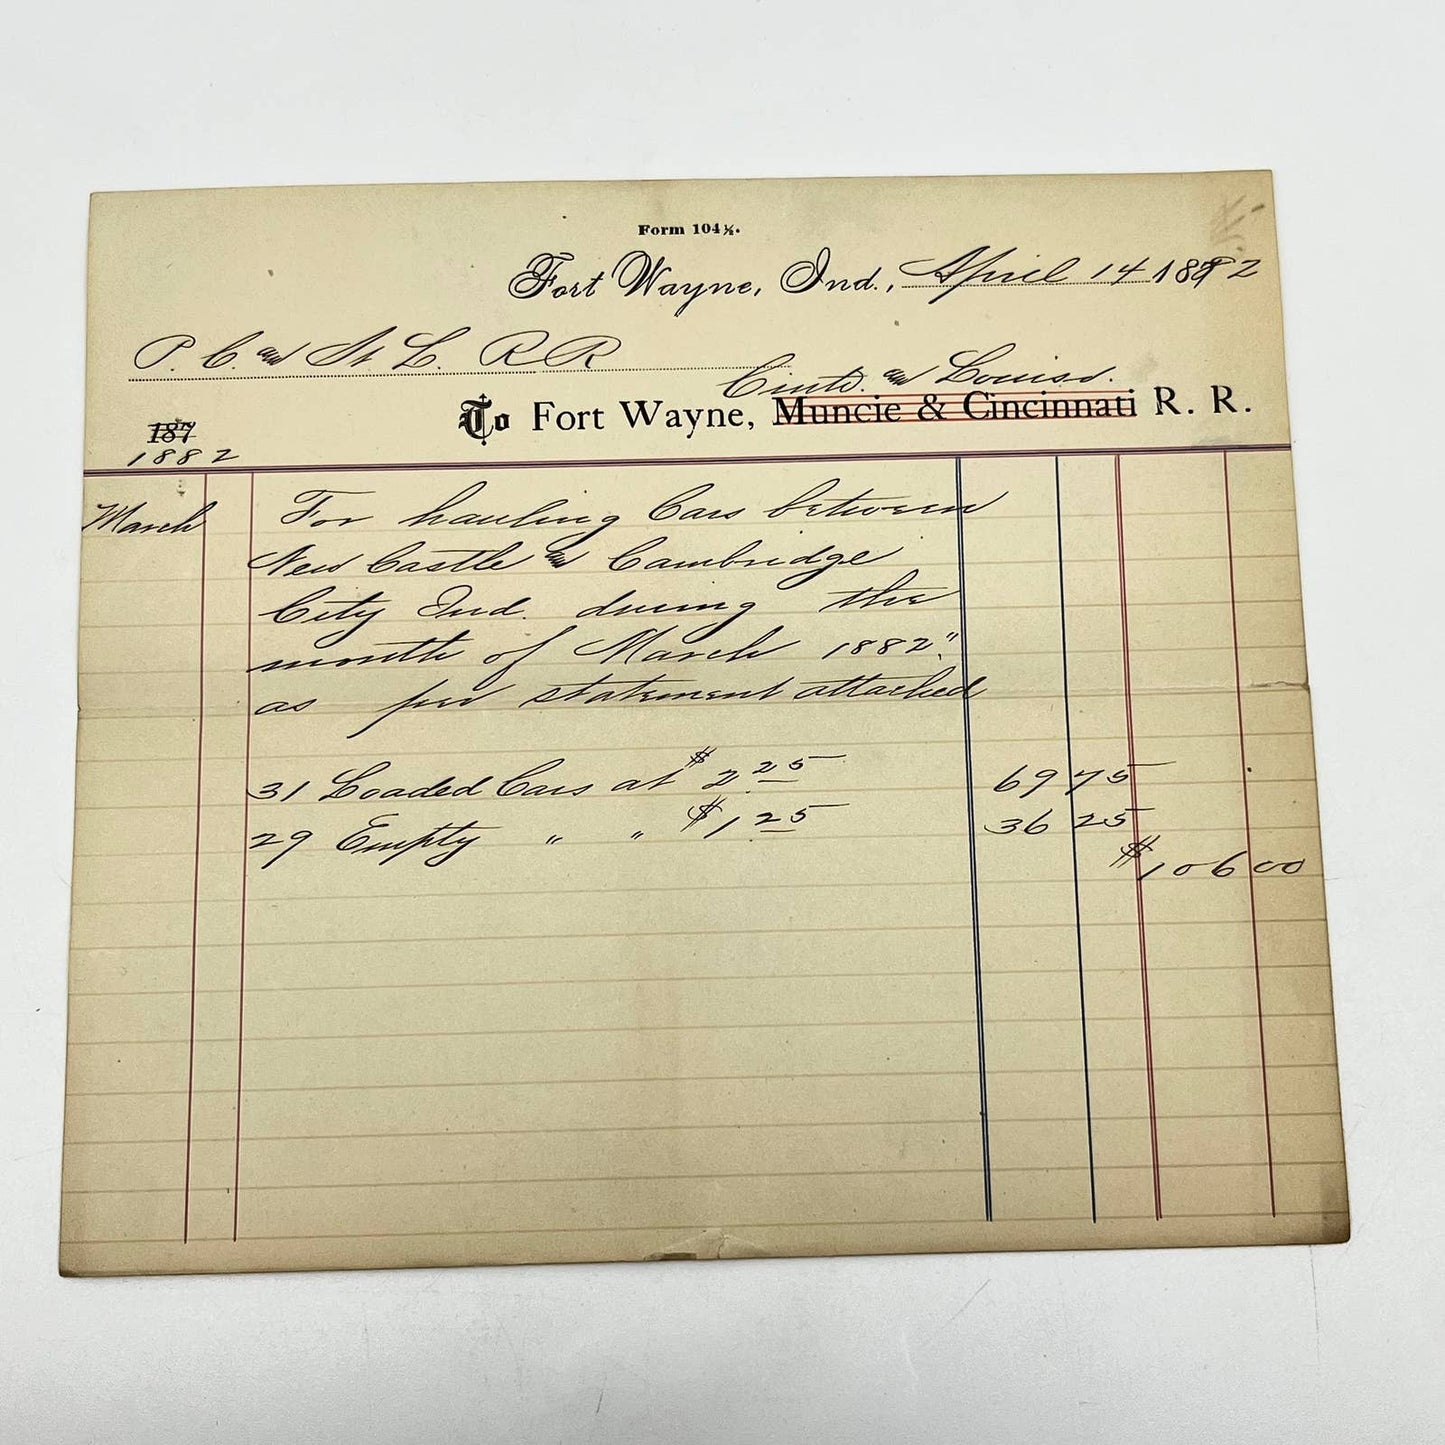 Form 104½.
Fort Wayne, Ind., April 14 1882
P. C. and St. L. RR
Cinti. and Louisv.
To Fort Wayne, Muncie & Cincinnati R. R.
187
1882
March For hauling Cars between
New Castle and Cambridge
City Ind. during the
month of March 1882."
as per statement attached
31 Loaded Cars at $2.25 69 75
29 Empty " " $1.25 36 25
$106 00